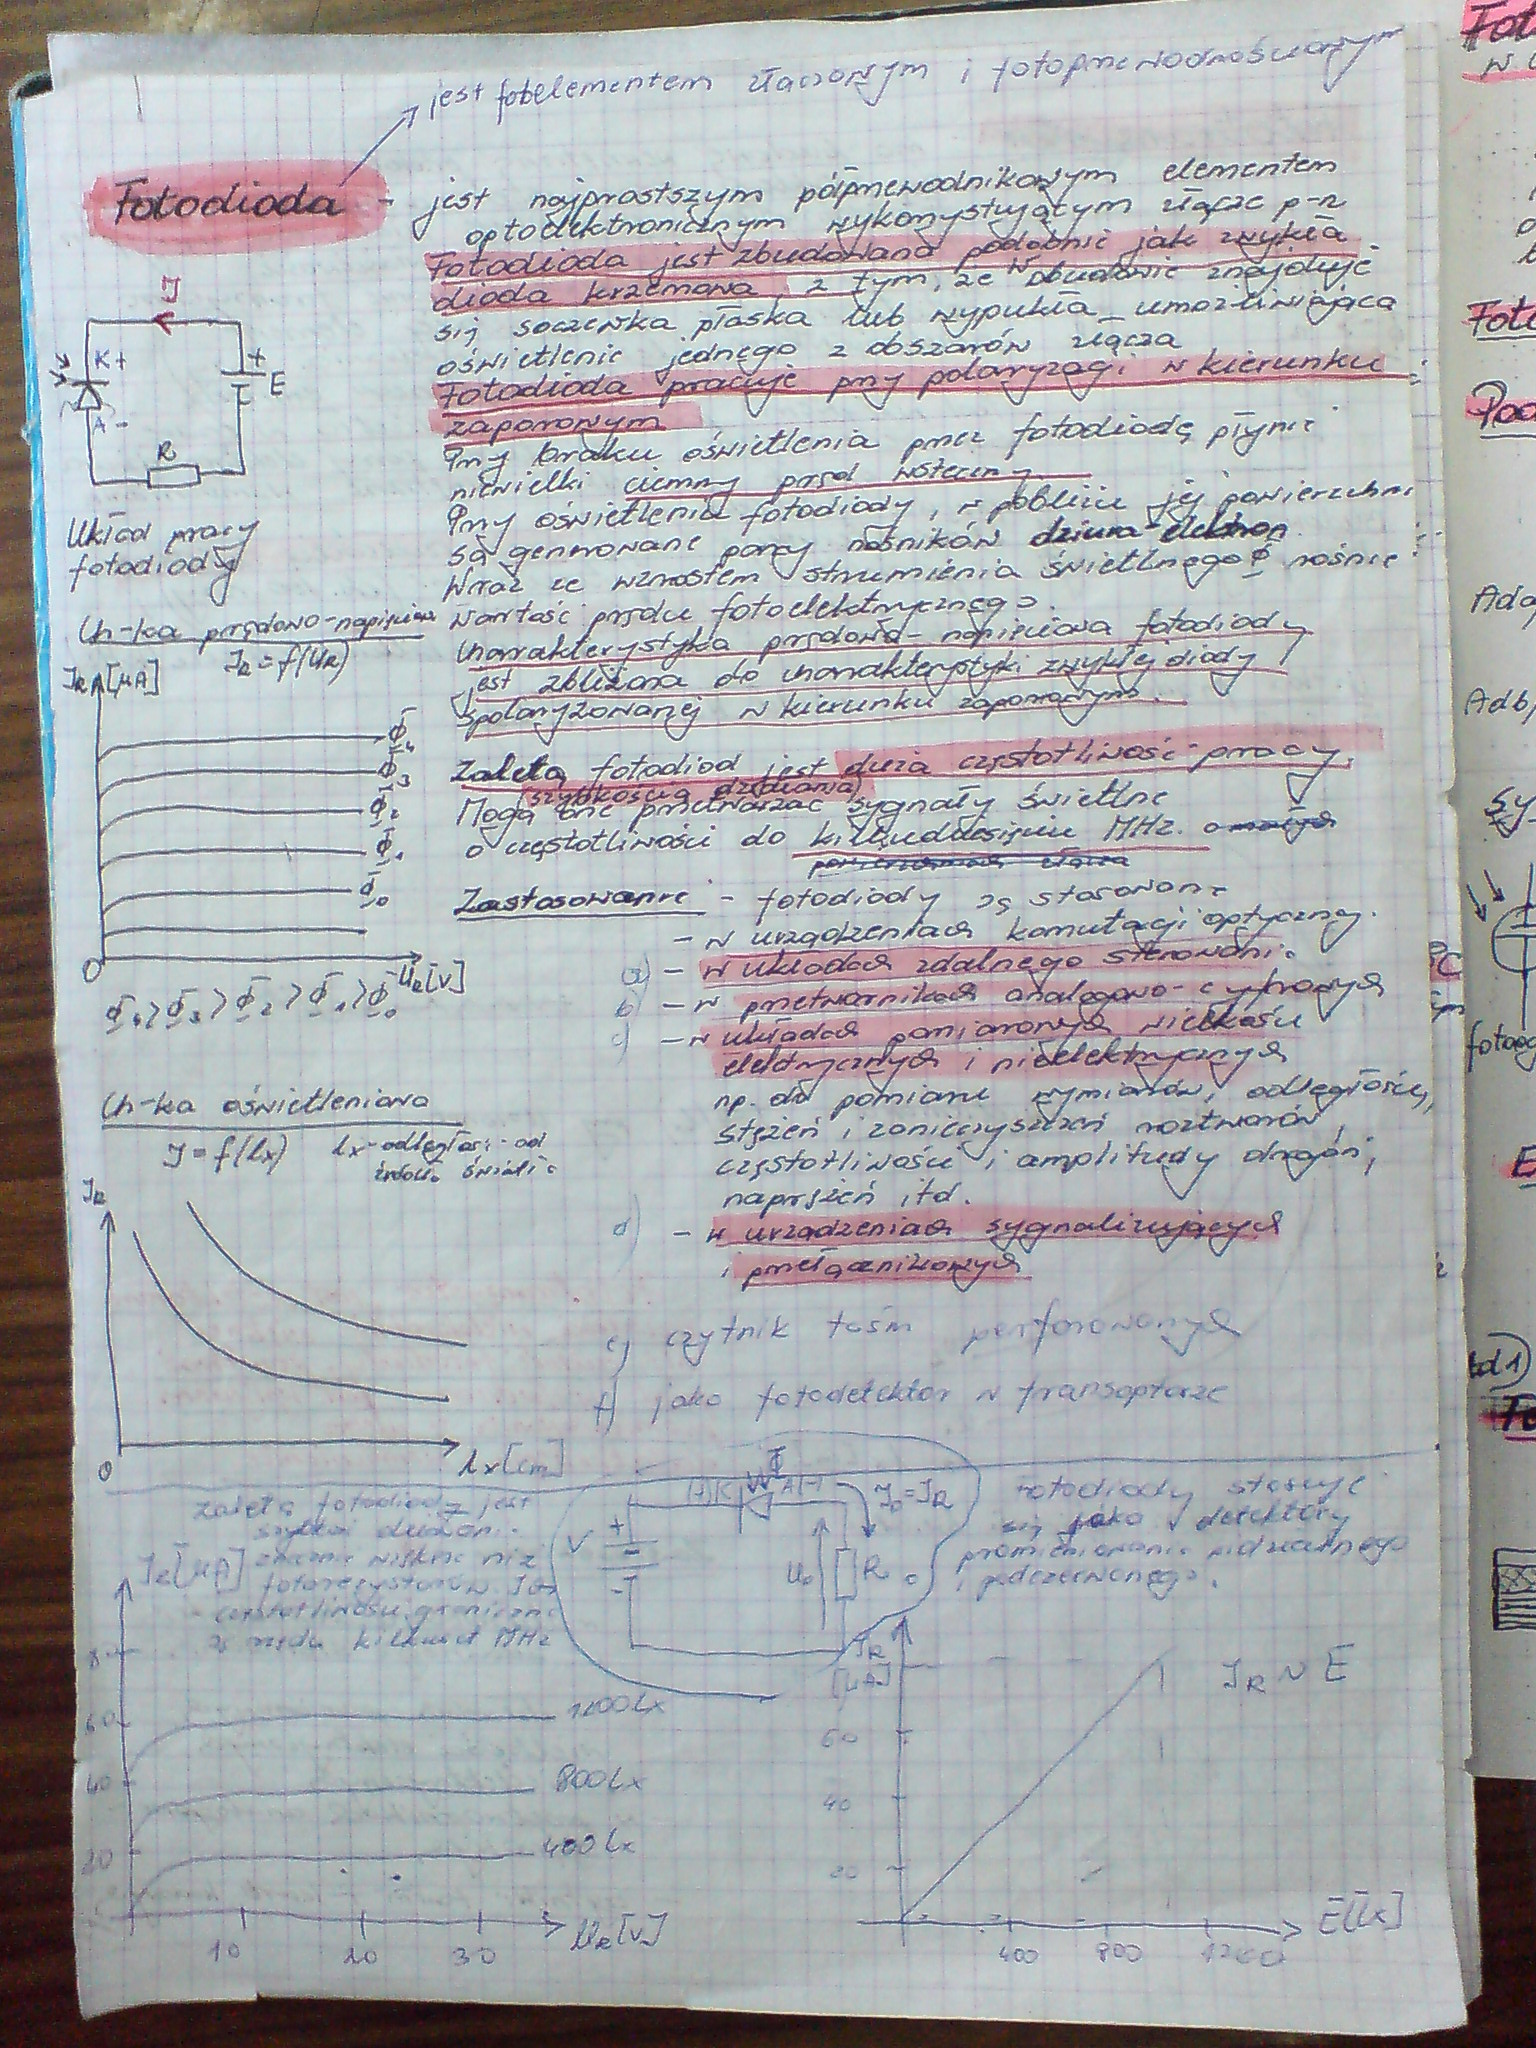 jest fotoelementem złączowym i fotoprzewodnościowym
Fotodioda - jest najprostszym półprzewodnikowym elementem
optoelektronicznym wykorzystującym złącze p-n
Fotodioda jest zbudowana podobnie jak zwykła
dioda krzemowa, z tym, że w obudowie znajduje
się soczewka płaska lub wypukła umożliwiająca
oświetlenie jednego z obszarów złącza
Fotodioda pracuje przy polaryzacji w kierunku
zaporowym
Przy braku oświetlenia przez fotodiodę płynie
niewielki ciemny prąd wsteczny
Przy oświetleniu fotodiody, w pobliżu jej powierzchni
są generowane pary nośników dziura-elektron
Wraz ze wzrostem strumienia świetlnego Φ rośnie
wartość prądu fotoelektrycznego.
Charakterystyka prądowo-napięciowa fotodiody
jest zbliżona do charakterystyki zwykłej diody
spolaryzowanej w kierunku zaporowym.
Zaletą fotodiod jest duża częstotliwość pracy
(szybkością działania)
Mogą one przetwarzać sygnały świetlne
o częstotliwości do kilkudziesięciu MHz.
Zastosowanie - fotodiody są stosowane
- w urządzeniach komutacji optycznej.
a) - w układach zdalnego sterowania
b) - w przetwornikach analogowo-cyfrowych
c) - w układach pomiarowych wielkości
elektrycznych i nieelektrycznych
np. do pomiaru wymiarów, odległości,
stężeń i zanieczyszczeń roztworów,
częstotliwości i amplitudy drgań,
naprężeń itd.
d) - w urządzeniach sygnalizujących
i przełącznikowych
e) czytnik taśm perforowanych
f) jako fotodetektor w transoptorze
I
K+
A-
+
E
R
Układ pracy
fotodiody
Ch-ka prądowo-napięciowa
IR = f(UR)
IR [μA]
Φ4
Φ3
Φ2
Φ1
Φ0
0
UR [V]
Φ4 > Φ3 > Φ2 > Φ1 > Φ0
Ch-ka oświetleniowa
I = f(lx) lx - odległość od
źródła światła
IR
0
lx [cm]
Zaletą fotodiody jest
szybkość działania
znacznie większa niż
fotorezystorów. Ich
częstotliwości graniczne
są rzędu kilkuset MHz
Φ
(+)K
A(-)
I0 = IR
V
+
-
U0
R0
Fotodiody stosuje
się jako detektory
promieniowania widzialnego
i podczerwonego.
IR [μA]
8
60
40
20
1200 Lx
800 Lx
400 Lx
10
20
30
UR [V]
IR
[μA]
60
40
20
IR ~ E
400
800
1200
E [lx]
Adb,